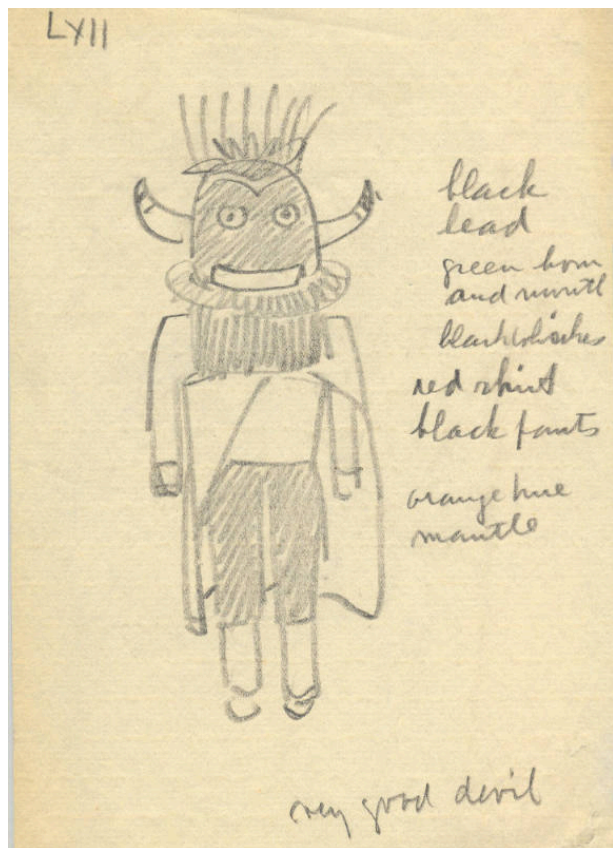 LXII
black
lead
green horn
and mouth
black whiskers
red shirt
black pants
orange hue
mantle
very good devil